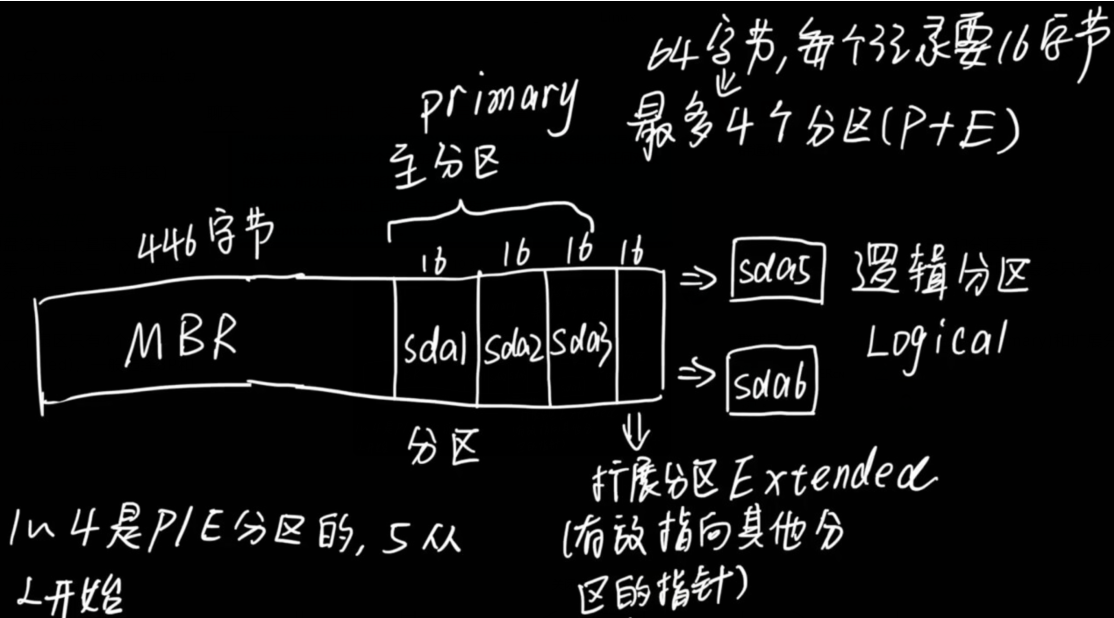 64字节,每个记录要16字节
最多4个分区(P+E)
primary
主分区
446字节
16 16 16 16
MBR
sda1 sda2 sda3
sda5
逻辑分区
Logical
sda6
分区
扩展分区Extended
(存放指向其他分
区的指针)
1~4是P/E分区的,5从
L开始